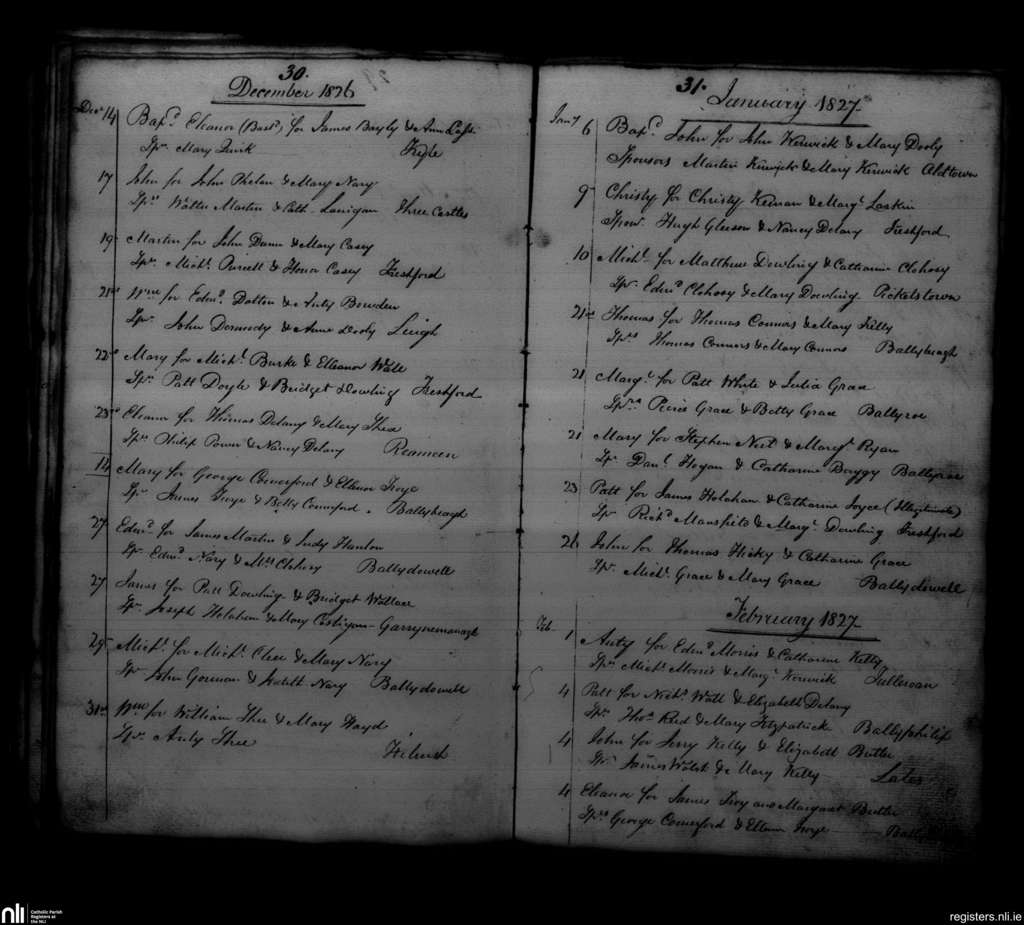 30.
December 1826
Decr 14 Bapd. Eleanor (Bast.) for James Bayly & Ann
Spr. Mary Quirk Kyle
17 John for John Phelan & Mary Nary
Sprs Walter Martin & Cath. Lanigan Three Castles
19 Martin for John Dunn & Mary Casey
Spr. Michl. Purcell & Honor Casey Freshford
21st Wm for Edmd. Dalton & Anty Bowden
Spr. John Dermody & Anne Dooly Lough
22nd Mary for Michl. Burke & Elleanor Wall
Sprs Patt Doyle & Bridget Dowling Freshford
23rd Eleanor for Thomas Delany & Mary Shea
Sprs Philip Power & Nancy Delany
14 Mary for George Comerford & Ellenor Troye
Spr. James Troye & Betty Comerford. Ballybeagh
27 Edmd. for James Martin & Judy Hanlon
Spr. Edmd. Nary & Mrs Clohosy Ballydowell
27 James for Patt Dowling & Bridget Wallace
Spr. Joseph Holohan & Mary Costigan - Garrynamanagh
29 Michl. for Michl. Shee & Mary Nary
Spr. John Gorman & Nary Ballydowell
31st Wm for William Shee & Mary
Spr. Anty Shee
31.
January 1827
Jany 6 Bapd. John for John Kerwick & Mary Dooly
Sponsors Martin Kerwick & Mary Kerwick Oldtown
9 Christy for Christy Keinan & Margt. Larkin
Spon. Hugh Gleeson & Nancy Delany Freshford
10 Michl. for Matthew Dowling & Catharine Clohosy
Spr. Edmd. Clohosy & Mary Dowling Picketstown
21st Thomas for Thomas Connors & Mary Kelly
Sprs Thomas Connors & Mary Connors Ballybeagh
21 Margt. for Patt White & Julia Grace
Sprs Pierce Grace & Betty Grace Ballyroe
21 Mary for Stephen & Margt. Ryan
Spr. Danl. Hogan & Catharine Ballyroe
23 Patt for James Holahan & Catharine Joyce (Illegitimate)
Spr. Richd. Mansfield & Margt. Dowling Freshford
26 John for Thomas Hicky & Catharine Grace
Spr. Michl. Grace & Mary Grace Ballydowell
February 1827
Feb. 1 Anty for Edmd. Morris & Catharine Kelly
Sprs Michl. Morris & Margt. Kerwick Tulleroan
4 Patt for Nichs. Wall & Elizabeth Delany
Sprs Thos. Reed & Mary Fitzpatrick Ballyphilip
4 John for Jerry Kelly & Elizabeth Butler
Sprs James Walsh & Mary Kelly Lates
4 Eleanor for James Troy and Margaret Butler
Sprs George Comerford & Ellenor Troye
nli
Catholic Parish
Registers at
the NLI
registers.nli.ie